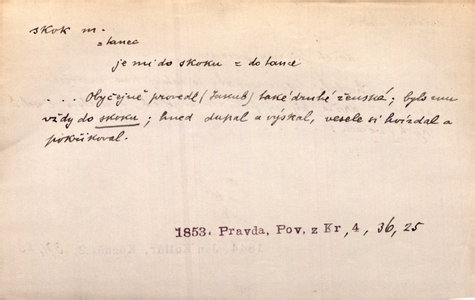 skok m.
= tanec
je mi do skoku = do tance
. . . Obyčejně provedl (Jakub) také druhé ženské; bylo mu
vždy do skoku; hned dupal a výskal, vesele si hvízdal a
pokřikoval.
1853. Pravda, Pov. z Kr, 4, 36, 25